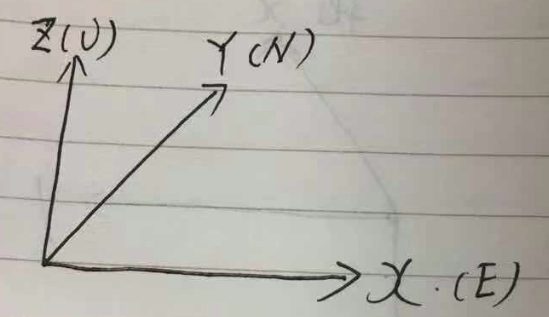 Z(U)
Y(N)
X.(E)